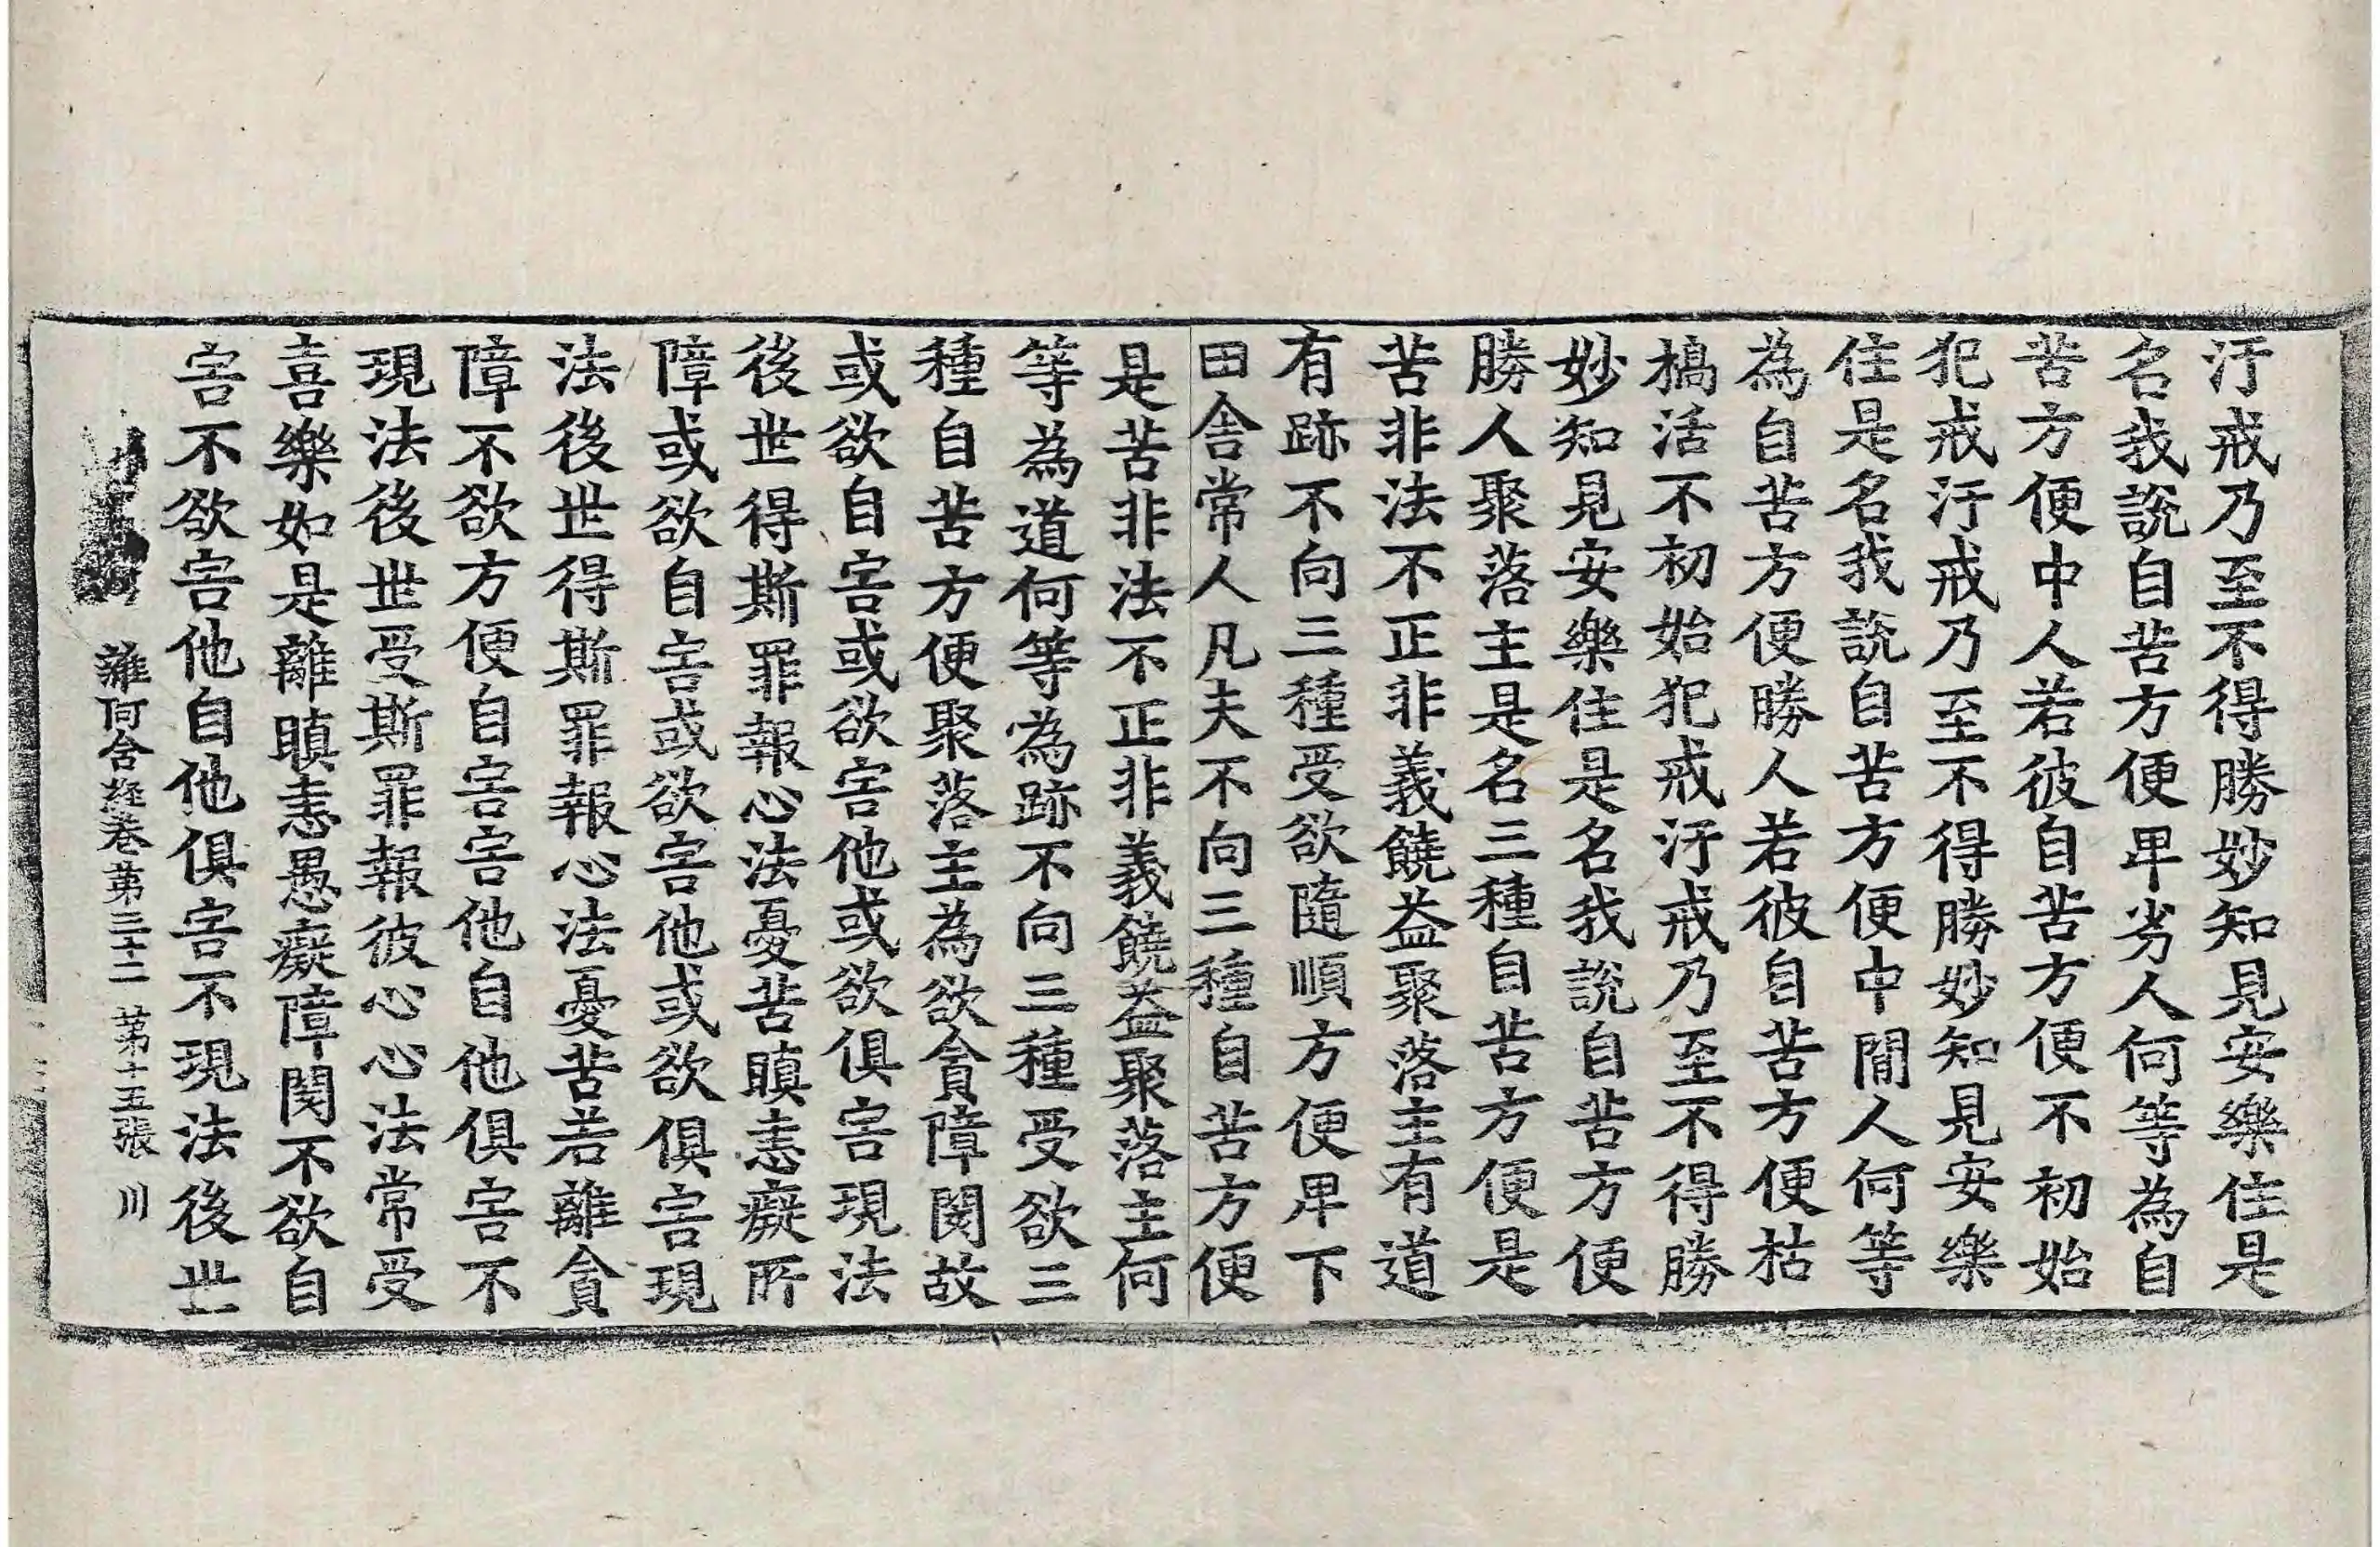 汙戒乃至不得勝妙知見安樂住是
名我說自苦方便卑劣人何等為自
苦方便中人若彼自苦方便不初始
犯戒汙戒乃至不得勝妙知見安樂
住是名我說自苦方便中閒人何等
為自苦方便勝人若彼自苦方便枯
槁活不初始犯戒汙戒乃至不得勝
妙知見安樂住是名我說自苦方便
勝人聚落主是名三種自苦方便是
苦非法不正非義饒益聚落主有道
有跡不向三種受欲隨順方便卑下
田舍常人凡夫不向三種自苦方便
是苦非法不正非義饒益聚落主何
等為道何等為跡不向三種受欲三
種自苦方便聚落主為欲貪障閡故
或欲自害或欲害他或欲俱害現法
後世得斯罪報心法憂苦瞋恚癡所
障或欲自害或欲害他或欲俱害現
法後世得斯罪報心法憂苦若離貪
障不欲方便自害害他自他俱害不
現法後世受斯罪報彼心心法常受
喜樂如是離瞋恚愚癡障閡不欲自
害不欲害他自他俱害不現法後世
雜阿含経巻第三十二 第十五張 川